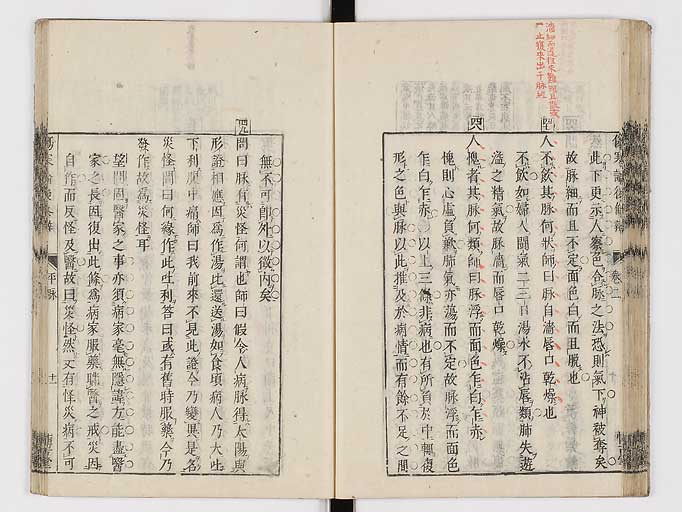 此下更示人察色合脉之法恐則氣下神被奪矣
故脉細而且不定面色白而且脫也
四七
人不飲其脉何狀師曰脉自濇唇口乾燥也
不飲如婦人鬭氣二三日湯水不沾唇類肺失遊
溢之精氣故脉濇而唇口乾燥
四八
人愧者其脉何類師曰脉浮而面色乍白乍赤
愧則心虛負歉肺氣亦蕩而不定故脉浮而面色
乍白乍赤○以上三條非病也有所負於中輒復
形之色與脉以此推及於病情而有餘不足之間
無不可卽外以徵内矣
四九
問曰脉有災怪何謂也師曰假令人病脉得太陽與
形證相應因爲作湯比還送湯如食頃病人乃大吐
下利腹中痛師曰我前來不見此證今乃變異是名
災怪問曰何緣作此吐利答曰或有舊時服藥今乃
發作故爲災怪耳
望問固醫家之事亦須病家毫無隱諱方能盡醫
家之長因復出此條爲病家服藥瞞醫之戒災因
自作而反怪及醫故曰災怪然又有怪災病不可
卷二
平脉
十一